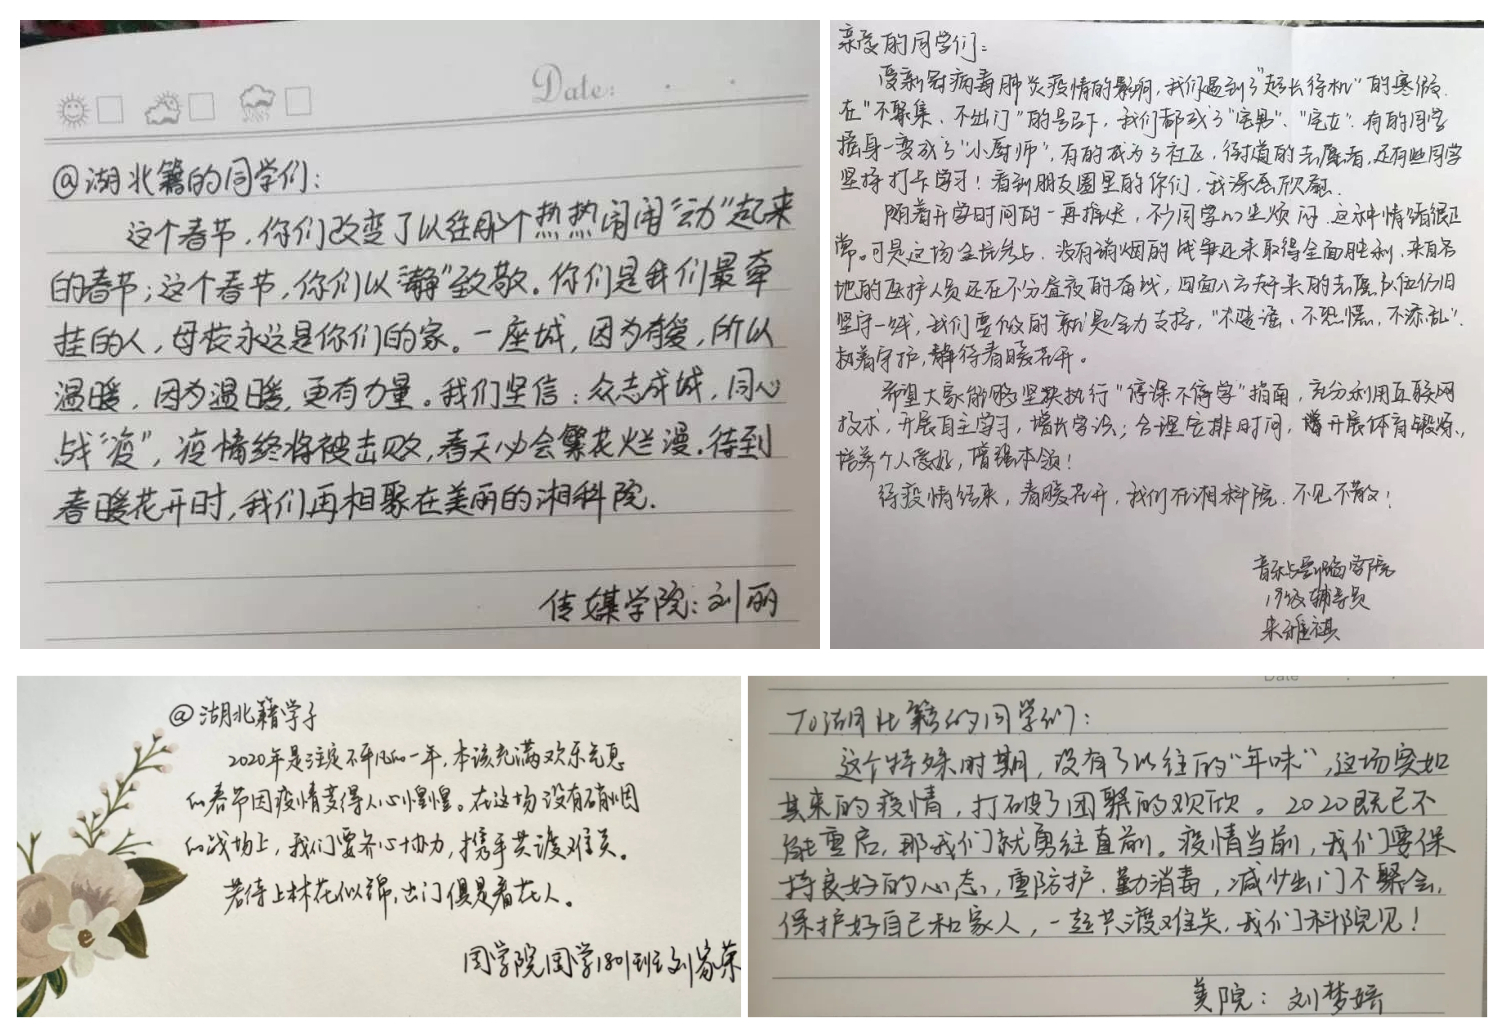 Date:
@湖北籍的同学们:
这个春节,你们改变了以往那个热热闹闹“动”起来
的春节;这个春节,你们以“静”致敬。你们是我们最牵
挂的人,母校永远是你们的家。一座城,因为有爱,所以
温暖,因为温暖,更有力量。我们坚信:众志成城,同心
战“疫”,疫情终将被击败,春天必会繁花烂漫.待到
春暖花开时,我们再相聚在美丽的湘科院.
传媒学院:刘丽
亲爱的同学们:
受新冠病毒肺炎疫情的影响,我们遇到了“超长待机”的寒假.
在“不聚集、不出门”的号召下,我们都成了“宅男”、“宅女”.有的同学
摇身一变成了“小厨师”,有的成为了社区,街道的志愿者,还有些同学
坚持打卡学习!看到朋友圈里的你们,我深感欣慰.
随着开学时间的一再推迟,不少同学心生烦闷.这种情绪很正
常。可是这场全民参与、没有硝烟的战争还未取得全面胜利,来自各
地的医护人员还在不分昼夜的奋战,四面八方赶来的志愿队伍仍旧
坚守一线,我们要做的就是全力支持,“不造谣、不恐慌、不添乱”.
执着守护,静待春暖花开。
希望大家能够坚决执行“停课不停学”指南,充分利用互联网
技术,开展自主学习,增长学识;合理安排时间,开展体育锻炼,
培养个人爱好,增强本领!
待疫情结束,春暖花开,我们在湘科院.不见不散!
音乐与舞蹈学院
19级辅导员
朱雅祺
@湖北籍学子
2020年是注定不平凡的一年,本该充满欢乐气息
的春节因疫情变得人心惶惶。在这场没有硝烟
的战场上,我们要齐心协力,携手共渡难关。
若待上林花似锦,出门俱是看花人。
国学院国学1801班刘家荣
Date
To湖北籍的同学们:
这个特殊时期,没有了以往的“年味”,这场突如
其来的疫情,打破了团聚的欢欣。2020既已不
能重启,那我们就勇往直前。疫情当前,我们要保
持良好的心态,重防护.勤消毒,减少出门不聚会,
保护好自己和家人,一起共渡难关,我们科院见!
美院:刘梦婷